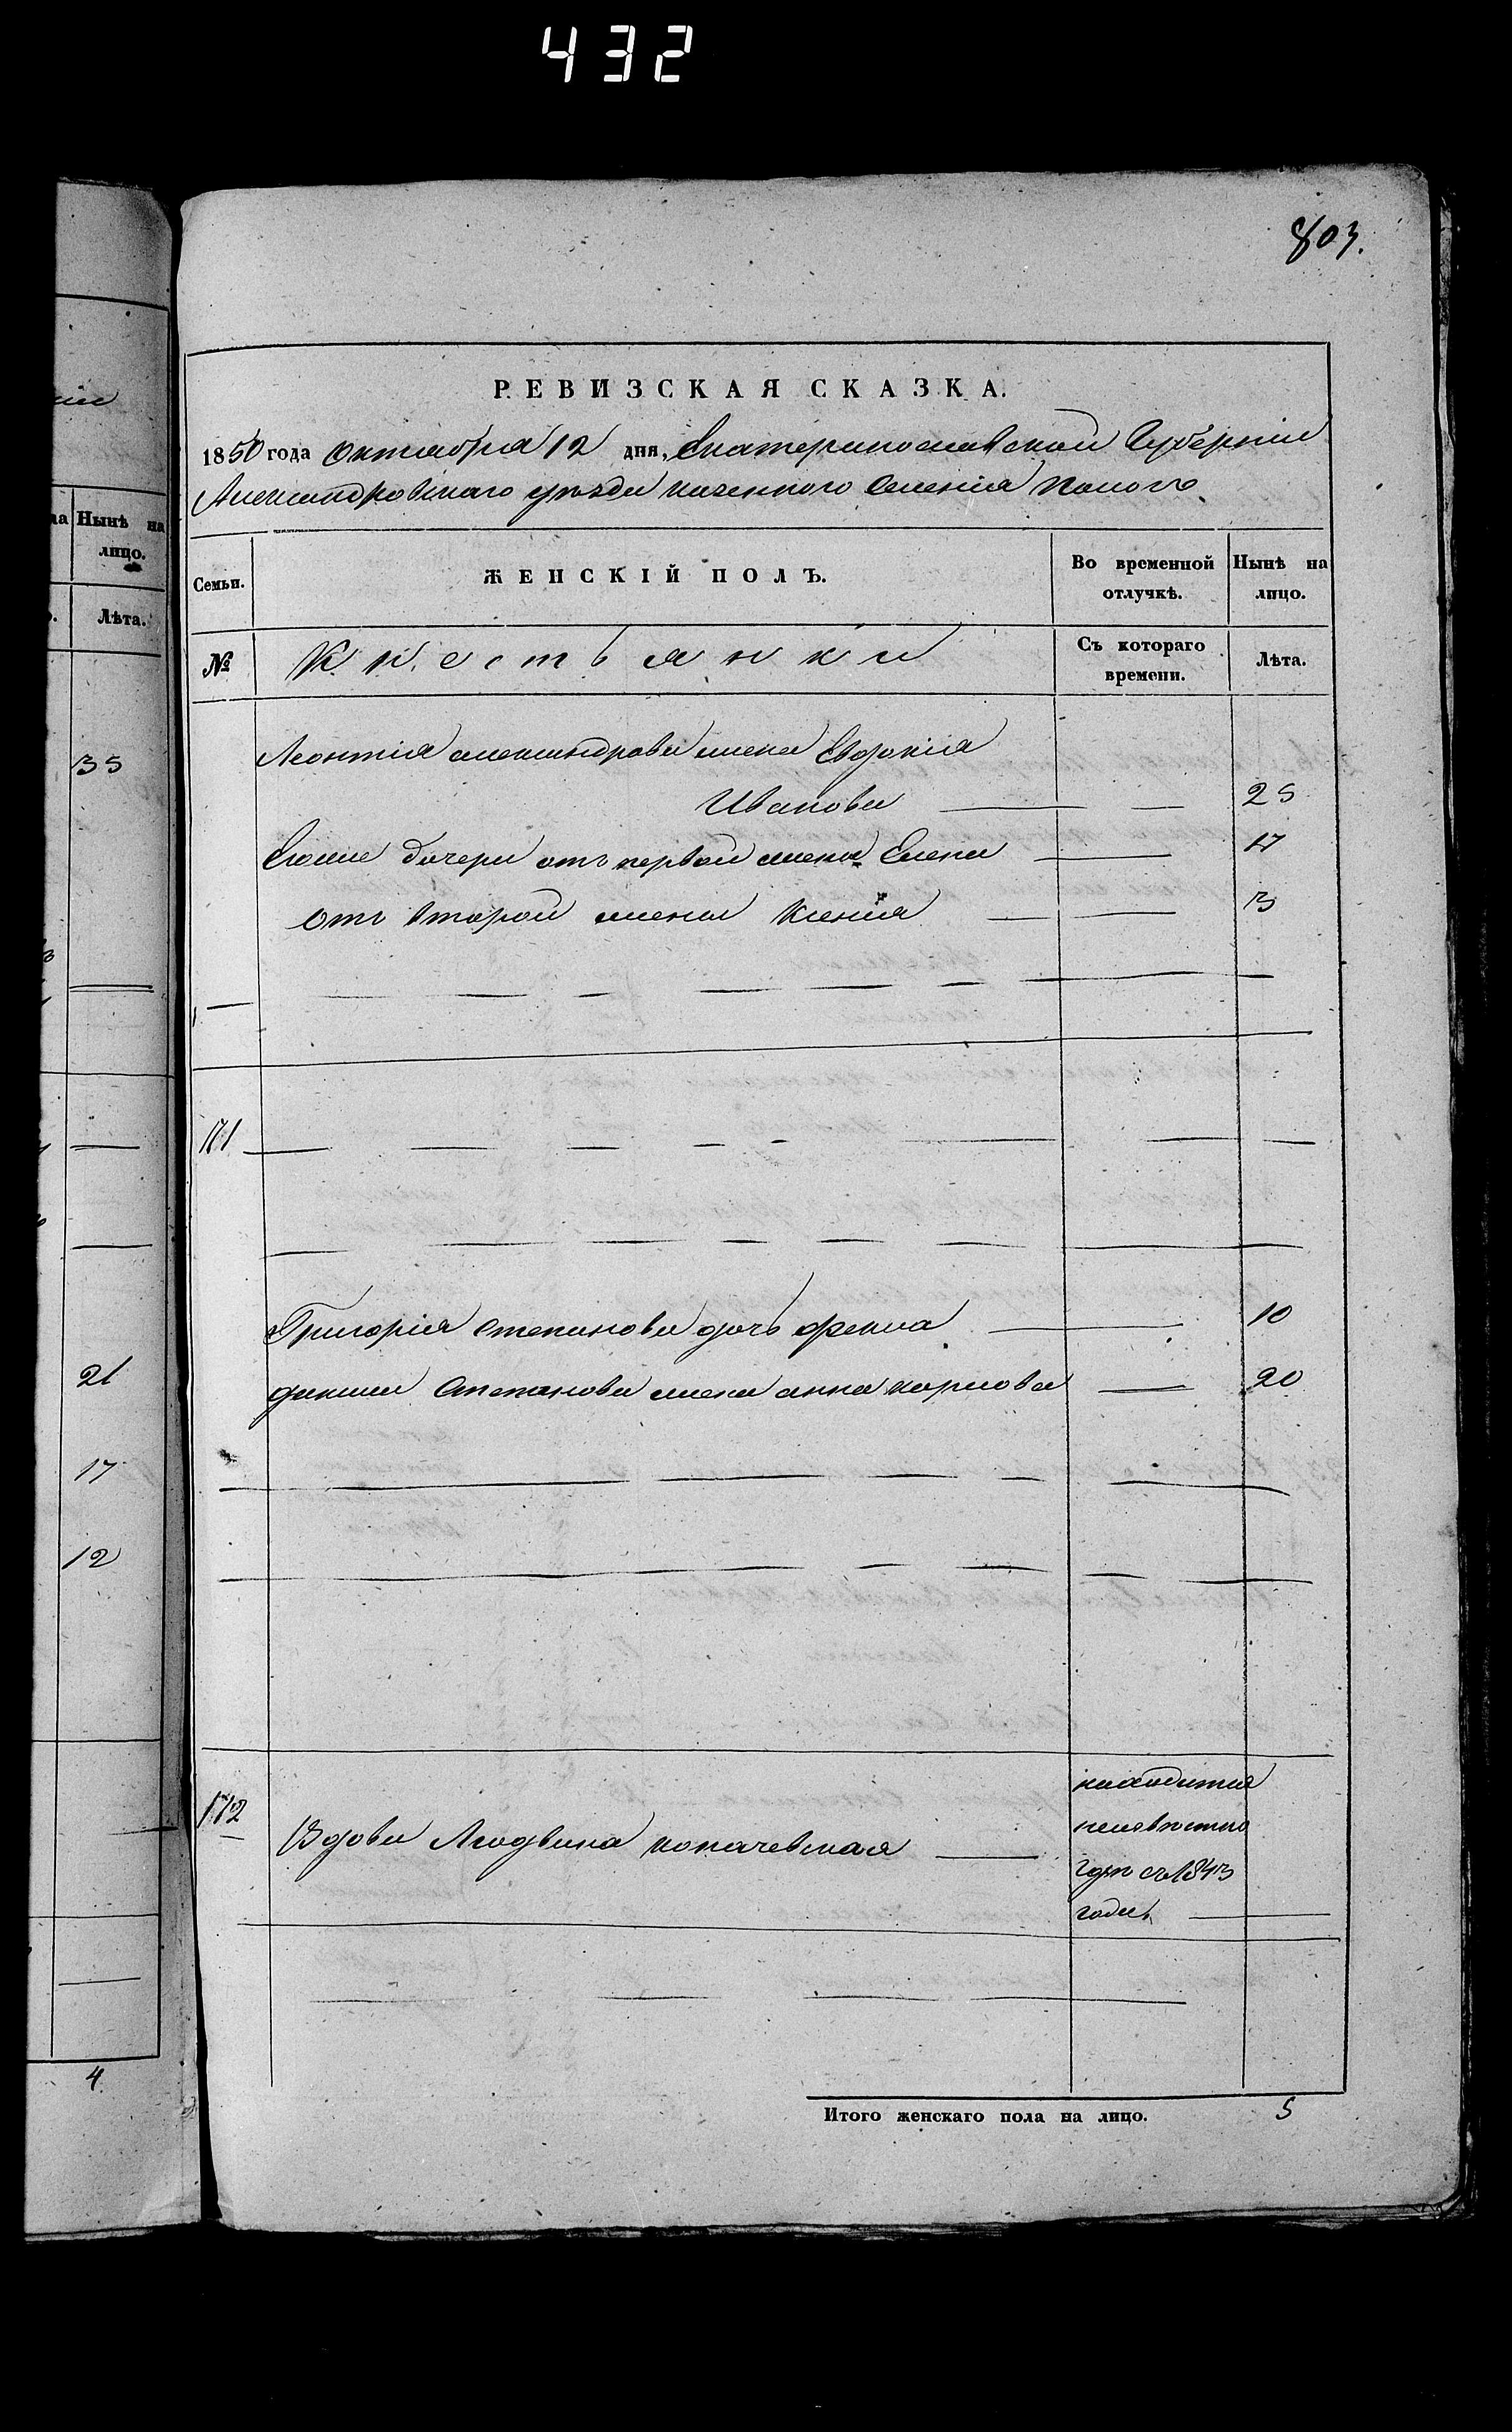 432
803.
РЕВИЗСКАЯ СКАЗКА.
1850 года Октября 12 дня, Екатеринославской Губерніи
Александровскаго уѣзда казенного Селенія Пологъ
Нынѣ на лицо.
Лѣта.
35
21
17
12
4
Семьи.
ЖЕНСКІЙ ПОЛЪ.
Во временной отлучкѣ.
Нынѣ на лицо.
№
Крестьянки
Съ котораго времени.
Лѣта.
Леонтія александрова жена Евдокія
Иванова 25
Егоже дочери отъ первой жены Елена 17
отъ второй жены Ксенія 3
171
Григорія Степанова дочь Фекла 10
Степанова жена анна карпова 20
172
Вдова Людвина копачевская
находится
неизвѣстно
гдѣ съ 1843
года.
Итого женскаго пола на лицо. 5